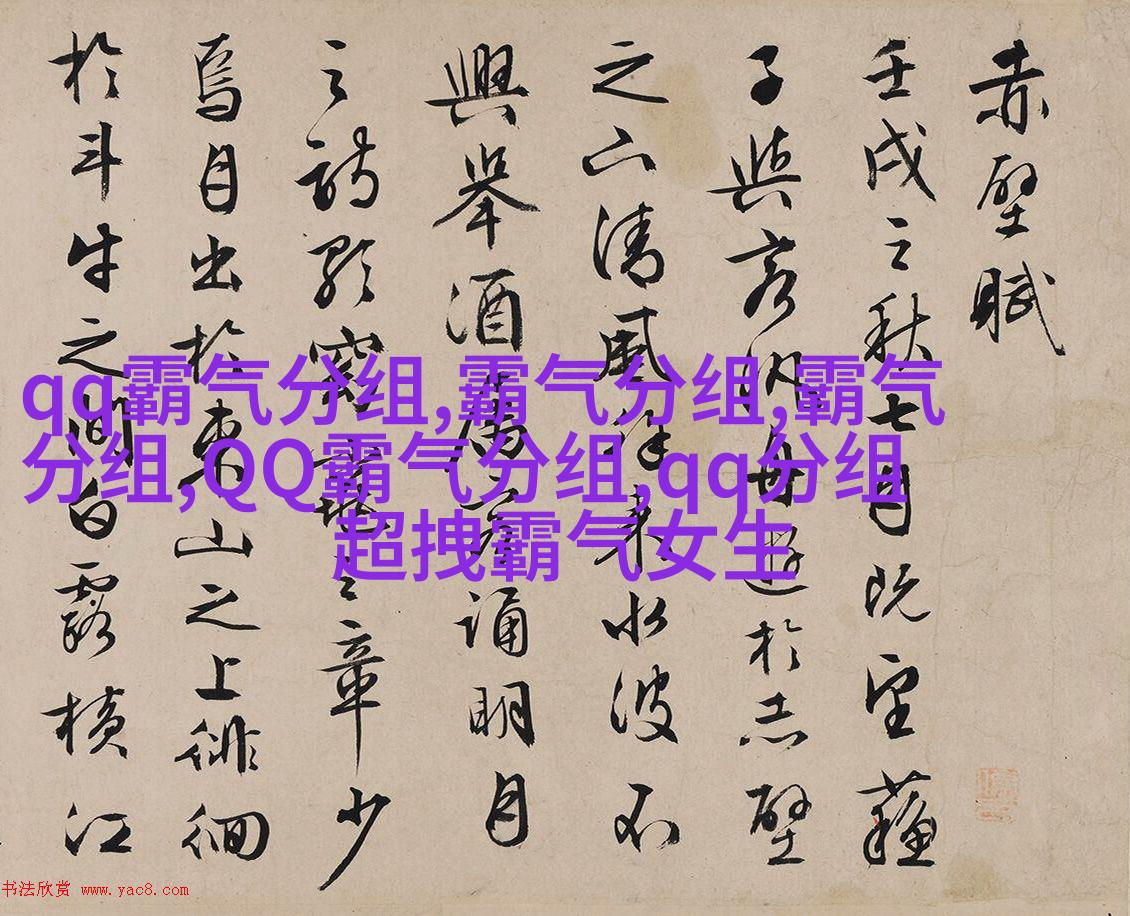 赤壁賦
壬戌之秋七月既望蘇
子與客汎舟遊於赤壁
之下清風徐來水波不
興舉酒屬客誦明月
之詩歌窈窕之章少
焉月出於東山之上徘徊
於斗牛之間白露橫江
qq霸气分组,霸气分组,霸气
分组,QQ霸气分组,qq分组
超拽霸气女生
书法欣赏 www.yac8.com